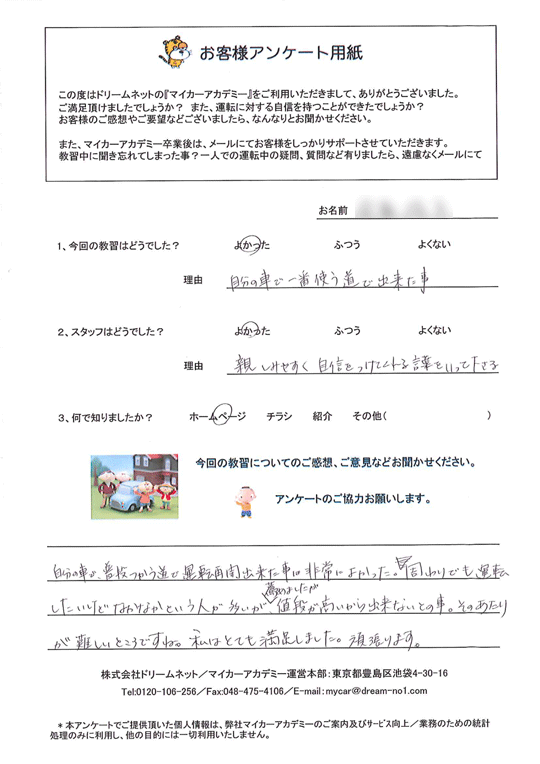 お客様アンケート用紙
この度はドリームネットの『マイカーアカデミー』をご利用いただきまして、ありがとうございました。
ご満足頂けましたでしょうか？ また、運転に対する自信を持つことができたでしょうか？
お客様のご感想やご要望などございましたら、なんなりとお聞かせください。
また、マイカーアカデミー卒業後は、メールにてお客様をしっかりサポートさせていただきます。
教習中に聞き忘れてしまった事？一人での運転中の疑問、質問など有りましたら、遠慮なくメールにて
お名前
1、今回の教習はどうでした？ よかった ふつう よくない
理由 自分の車で一番使う道で出来た事
2、スタッフはどうでした？ よかった ふつう よくない
理由 親しみやすく自信をつけてくれる言葉をいって下さる
3、何で知りましたか？ ホームページ チラシ 紹介 その他( )
今回の教習についてのご感想、ご意見などお聞かせください。
アンケートのご協力お願いします。
自分の車で、普段つかう道で運転再開出来た事は非常によかった。周わりでも運転
薦めましたが
したいけどなかなかという人が多いが、値段が高いから出来ないとの事。そのあたり
が難しいところですね。私はとても満足しました。頑張ります。
株式会社ドリームネット／マイカーアカデミー運営本部：東京都豊島区池袋4-30-16
Tel:0120-106-256／Fax:048-475-4106／E-mail:mycar@dream-no1.com
＊本アンケートでご提供頂いた個人情報は、弊社マイカーアカデミーのご案内及びサービス向上／業務のための統計
処理のみに利用し、他の目的には一切利用いたしません。